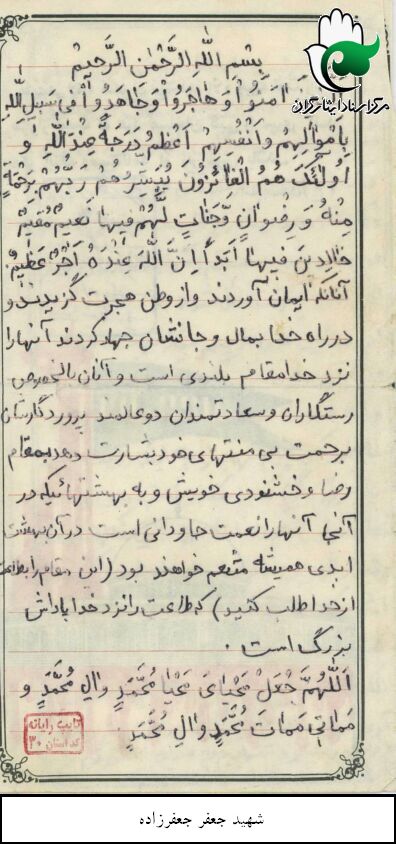 مرکز اسناد ایثارگران
بِسْمِ اللهِ الرَّحْمٰنِ الرَّحیمْ
اٰمَنوُا وَ هٰاجَرُوا وَ جٰاهَدُوا فی سَبیلِ اللهِ
بِاَمْوالِهِمْ وَ اَنْفُسِهِمْ اَعْظَمُ دَرَجَةً عِنْدَ اللهِ وَ
اُولٰئِکَ هُمُ الْفٰائِزُونَ یُبَشِّرُهُمْ رَبُّهُمْ بِرَحْمَةٍ
مِنْهُ وَ رِضْوانٍ وَّجَنّاتٍ لَّهُمْ فیهٰا نَعیمٌ مُقیمٌ
خٰالِدینَ فیهٰا اَبَداً اِنَّ اللهَ عِنْدَهُ اَجْرٌ عَظیمٌ
آنانکه ایمان آوردند و از وطن هجرت گزیدند و
در راه خدا بمال و جانشان جهاد کردند آنها را
نزد خدا مقام بلندی است و آنان بالخصوص
رستگاران و سعادتمندان دو عالمند پروردگارشان
برحمت بی منتهای خود بشارت دهد بمقام
رضا و خشنودی خویش و به بهشتهائیکه در
آنجا آنها را نعمت جاودانی است در آن بهشت
ابدی همیشه متنعم خواهند بود (این مقام را بطاعت
از خدا طلب کنید) که طاعت را نزد خدا پاداش
بزرگ است.
اَللّهُمَّ جْعَلْ مَحْیٰایَ مَحْیٰا مُحَمَّدٍ وَالِ مُحَمَّدٍ وَ
مَمٰاتی مَمٰاتَ مُحَمَّدٍ وَالِ مُحَمَّدٍ
تایپ رایانه
کد استان ۳۰
شهید جعفر جعفرزاده